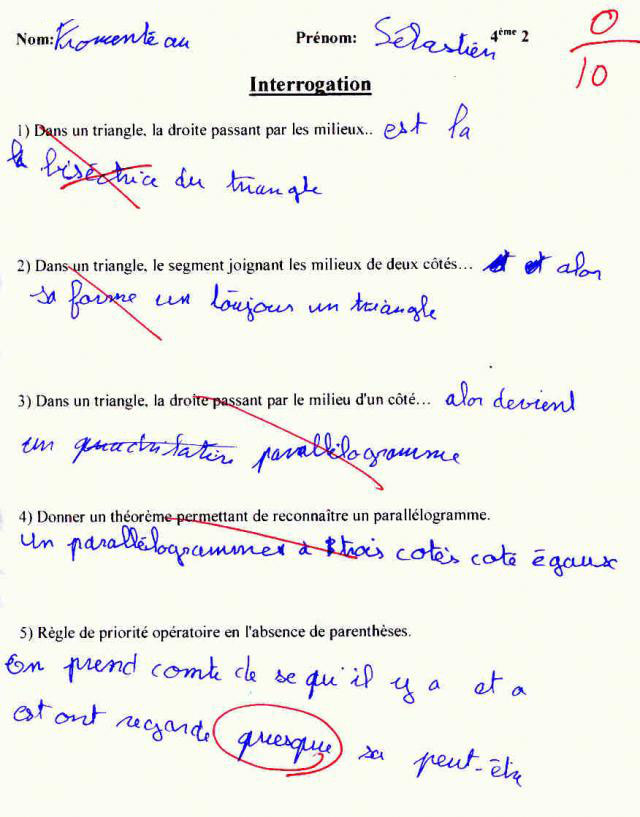 Nom: Fromenteau Prénom: Sébastien 4ème 2
0
10
Interrogation
1) Dans un triangle, la droite passant par les milieux.. est la
la biséctrice du triangle
2) Dans un triangle, le segment joignant les milieux de deux côtés... et alor
sa forme un toujous un triangle
3) Dans un triangle, la droite passant par le milieu d'un côté... alor devient
un parallélogramme
4) Donner un théorème permettant de reconnaître un parallélogramme.
Un parallélogrammes à trois cotés coté égaux
5) Règle de priorité opératoire en l'absence de parenthèses.
On prend comte de se qu'il y a et a
est ont regarde quesque sa peut-être